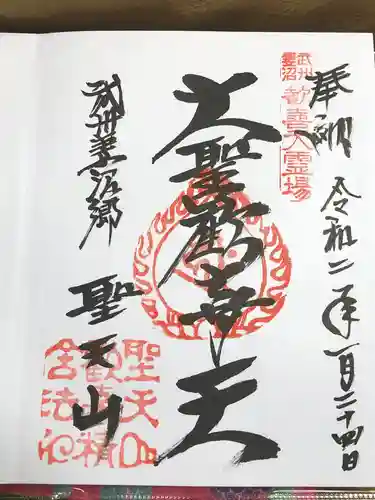 奉納 令和二年一月二十四日
武州
妻沼
歓喜天霊場
大聖歓喜天
武州妻沼郷
聖天山